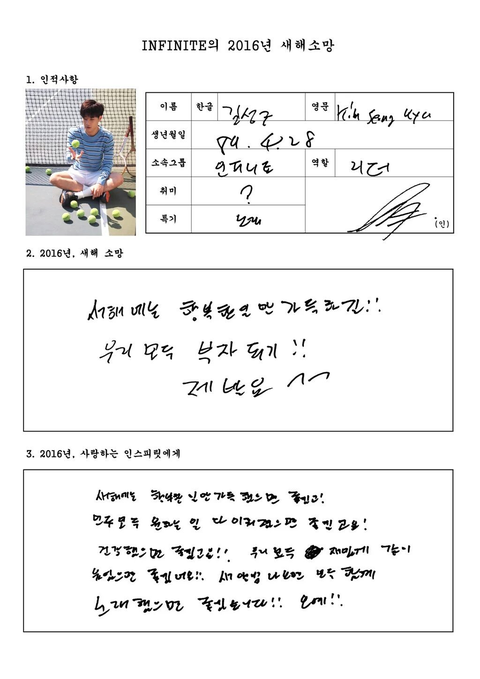 INFINITE의 2016년 새해소망
1. 인적사항
이름 한글 김성규 영문 Kim Sung Kyu
생년월일 89. 4. 28
소속그룹 인피니트 역할 리더
취미 ?
특기 노래
(인)
2. 2016년, 새해 소망
새해에는 행복한 일만 가득하길!!
우리 모두 부자 되기!!
제발요 ^^
3. 2016년, 사랑하는 인스피릿에게
새해에는 행복한 일만 가득 했으면 좋겠고!
모두모두 원하는 일 다 이뤄졌으면 좋겠고요!
건강했으면 좋겠고요!! 우리 모두 재밌게 같이
놀았으면 좋겠네요!! 새 앨범 나오면 모두 함께
노래했으면 좋겠습니다!! 오예!!